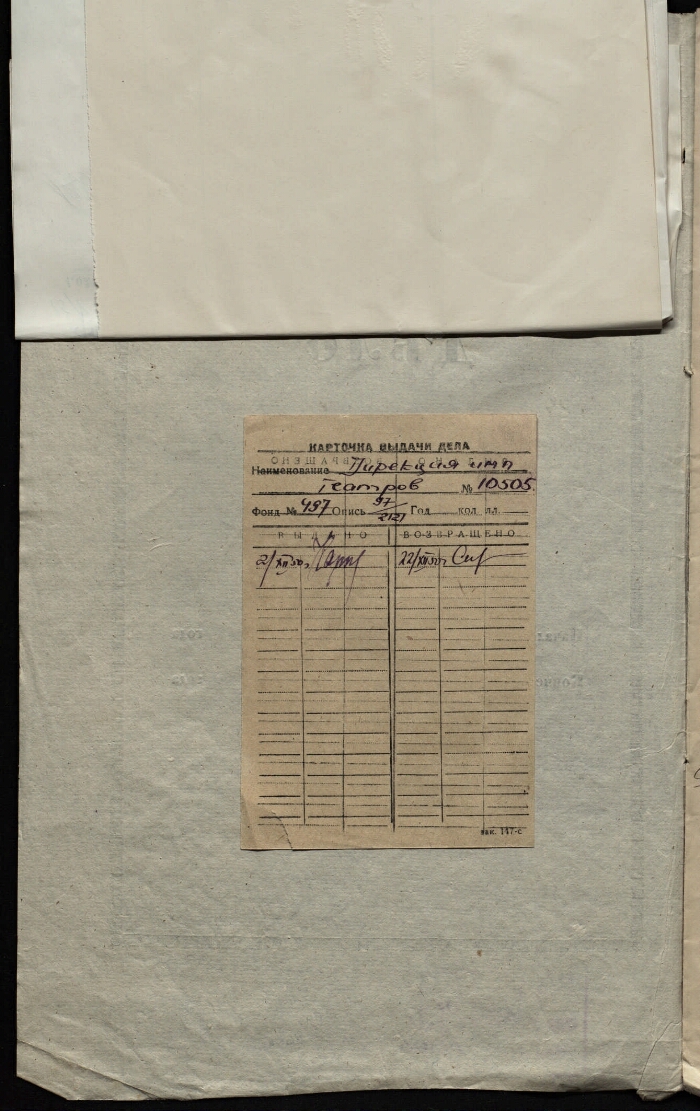 КАРТОЧКА ВЫДАЧИ ДЕЛА
Наименование Дирекция имп
Театров № 10505
Фонд № 497 Опись 97/2121 Год кол. лл.
ВЫДАНО ВОЗВРАЩЕНО
2/XII 22/XII
зак. 147-с